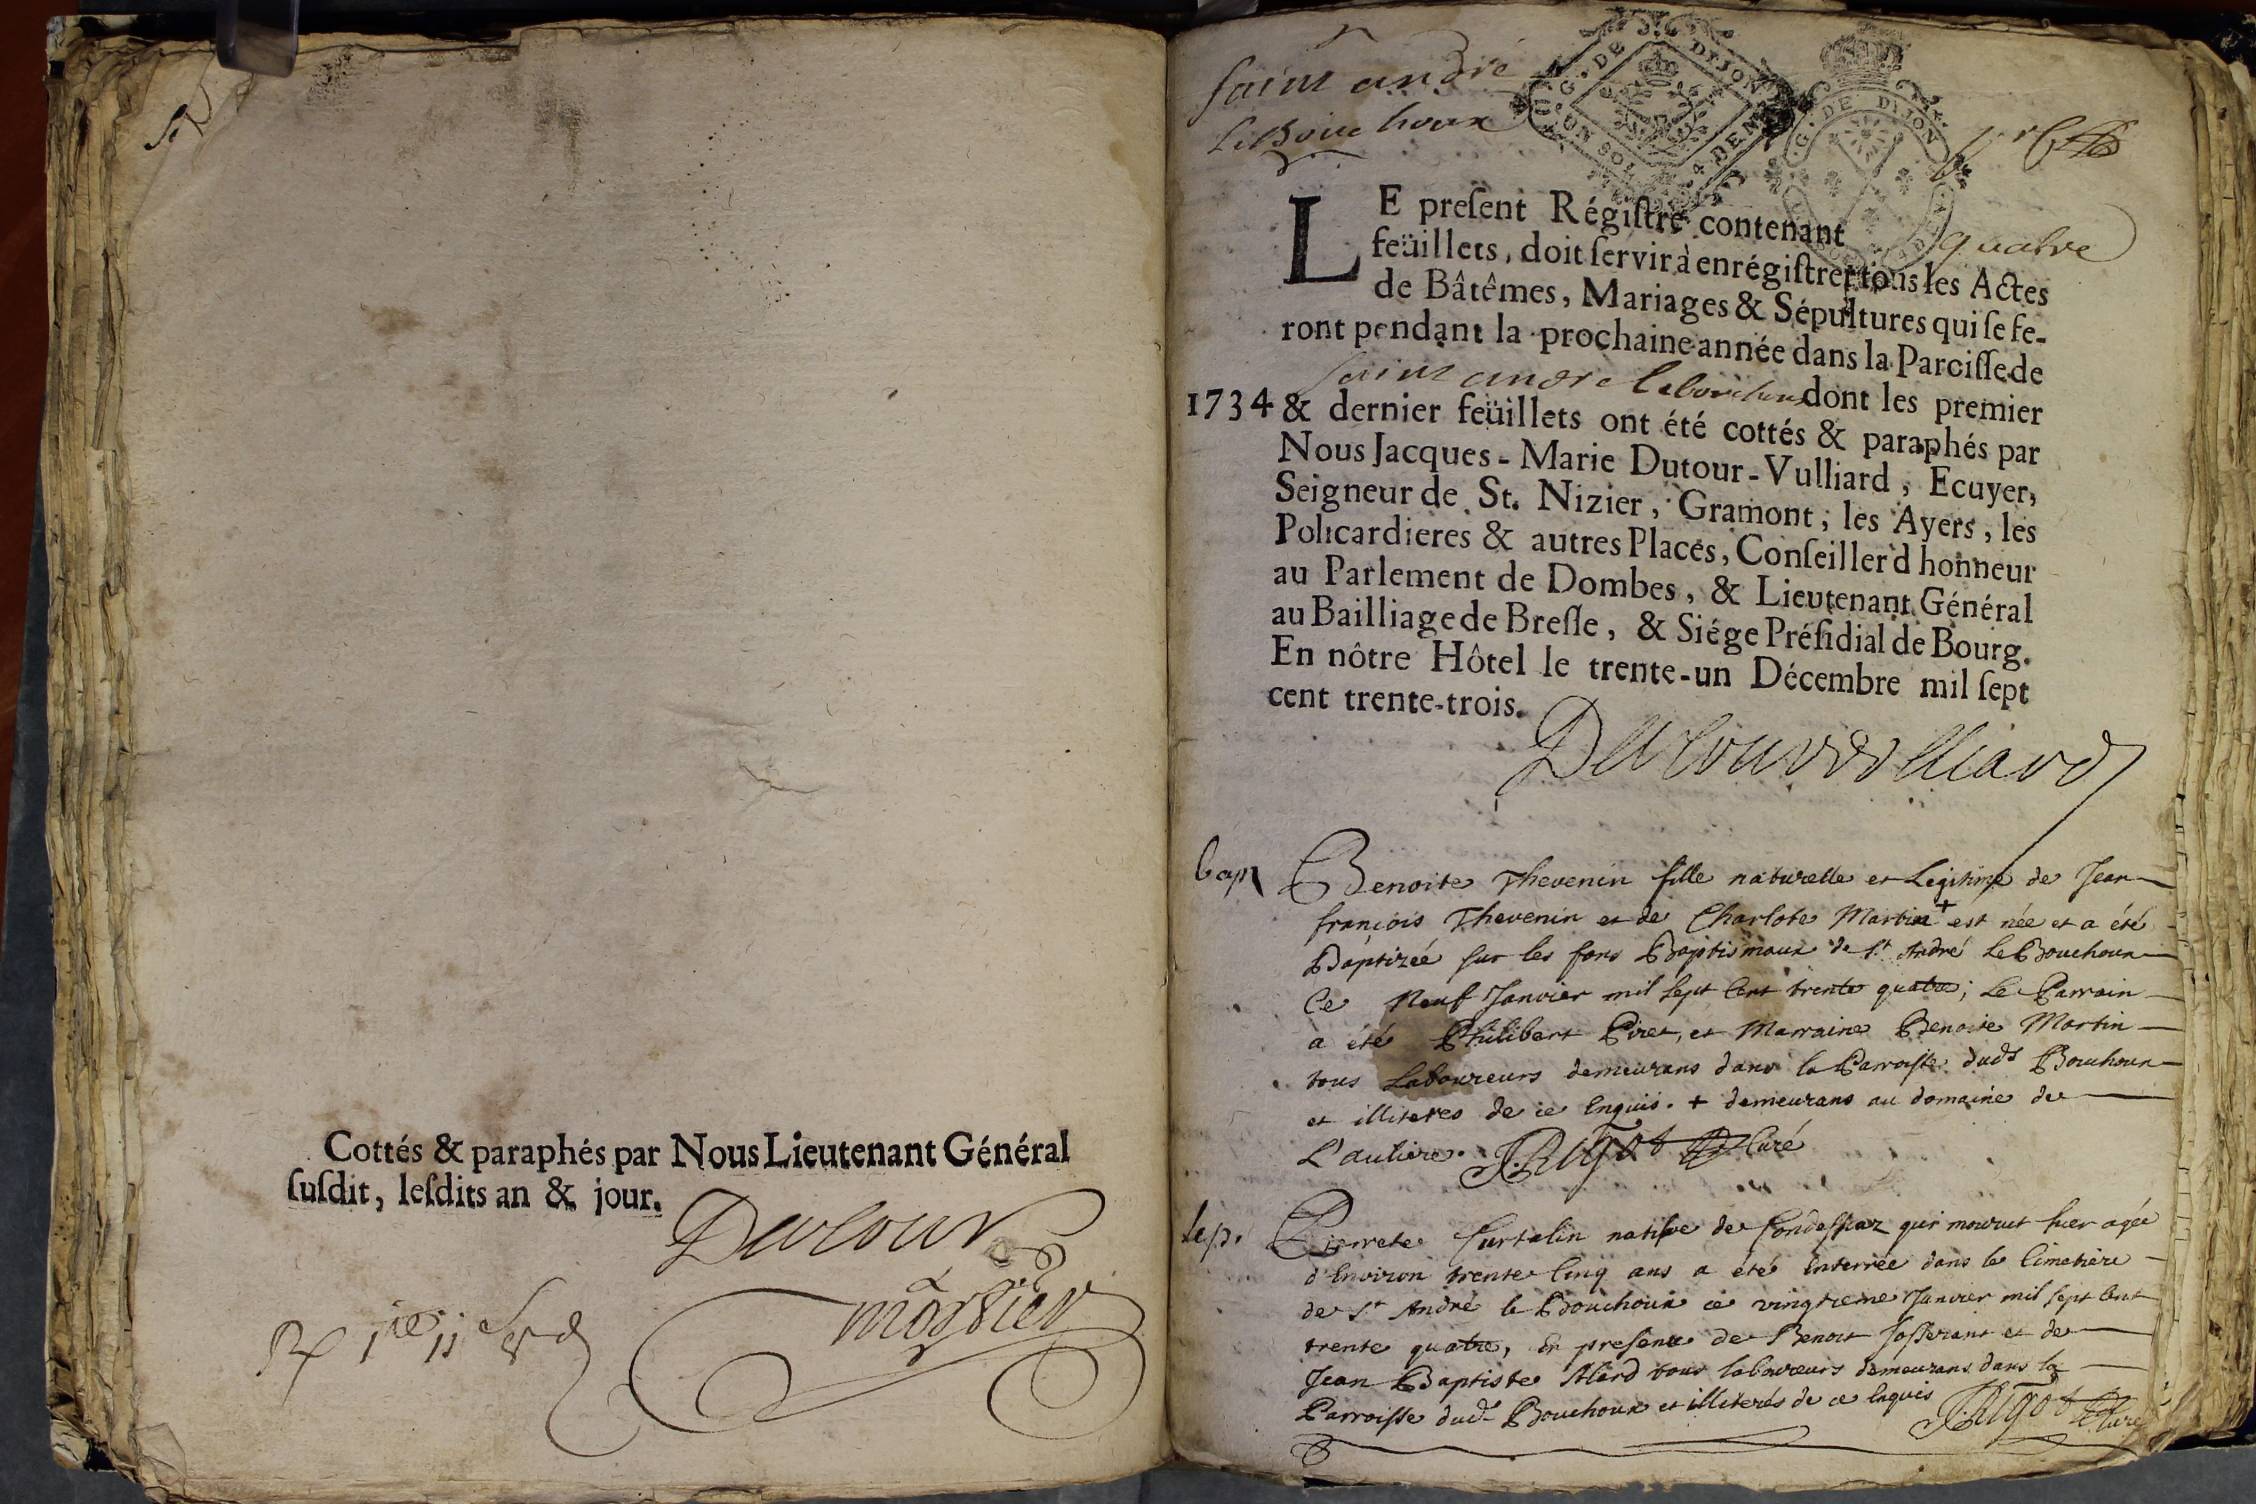 Cottés & paraphés par Nous Lieutenant Général
ſuſdit, leſdits an & jour.
Dutour
mortier
Saint andré
le Bouchoux
G. DE DIJON
UN SOL 4 DEN
G. DE DIJON
LE preſent Régiſtre contenant quatre
feüillets, doit ſervir à enrégiſtrer tous les Actes
de Bâtêmes, Mariages & Sépultures qui ſe fe-
ront pendant la prochaine année dans la Paroiſſe de
Saint andré le bouchoux dont les premier
1734 & dernier feüillets ont été cottés & paraphés par
Nous Jacques-Marie Dutour-Vulliard, Ecuyer,
Seigneur de St. Nizier, Gramont, les Ayers, les
Policardieres & autres Places, Conſeiller d honneur
au Parlement de Dombes, & Lieutenant Général
au Bailliage de Breſſe, & Siége Préſidial de Bourg.
En nôtre Hôtel le trente-un Décembre mil ſept
cent trente-trois.
Dutour Vulliard
bap Benoite Thevenin fille naturelle et Legitime de Jean
françois Thevenin et de Charlote Martin + est née et a été
Baptizée sur les fons Baptismaux de St André Le Bouchoux
Ce Neuf Janvier mil sept Cent trente quatre; Le Parrain
a été Philibert Piret, et Marraine Benoite Martin
tous Laboureurs demeurans dans la Parroisse dudt Bouchoux
et illiteres de ce Enquis. + demeurans au domaine de
L'auliere. JRigot Curé
Sep. Pierrete Curtelin native de Condessiaz qui mourut hier agée
d'Environ trente Cinq ans a été Enterrée dans le Cimetiere
de St André le Bouchoux ce vingtieme Janvier mil sept Cent
trente quatre, En presence de Benoit Josserant et de
Jean Baptiste Alard tous laboureurs demeurans dans la
Parroisse dudt Bouchoux et illiterés de ce Enquis JRigot Curé